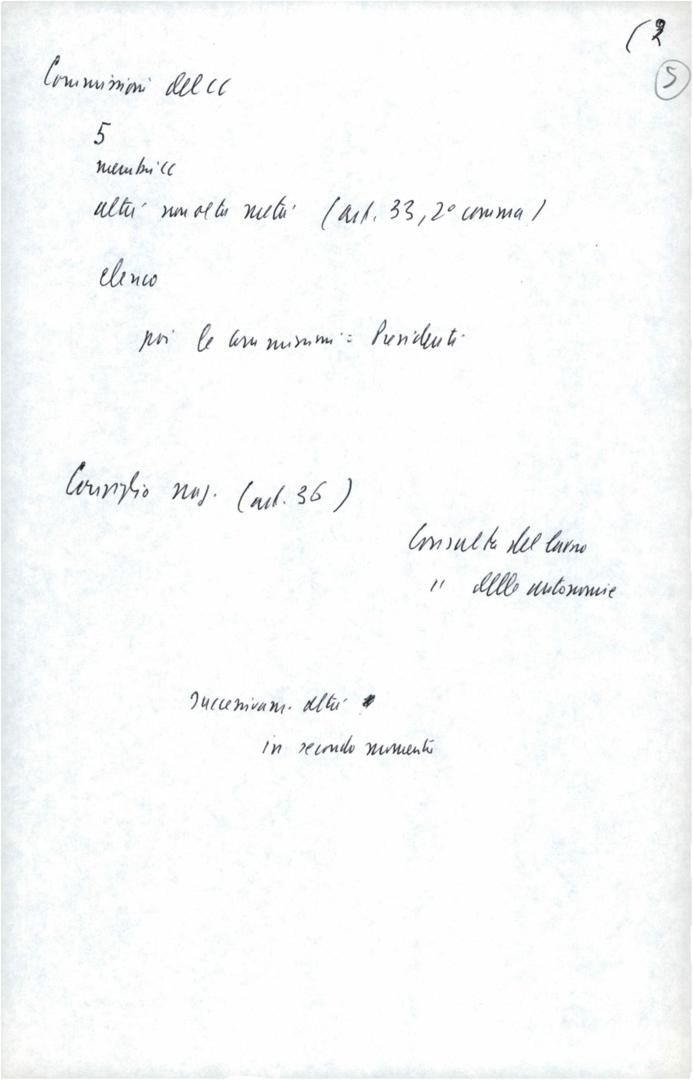 (2
5
Commissioni del CC
5
membri CC
altri non oltre metà (art. 33, 2° comma)
elenco
poi le commissioni = Presidenti
Consiglio naz. (art. 36)
Consulta del lavoro
" delle autonomie
successivam. altri
in secondo momento